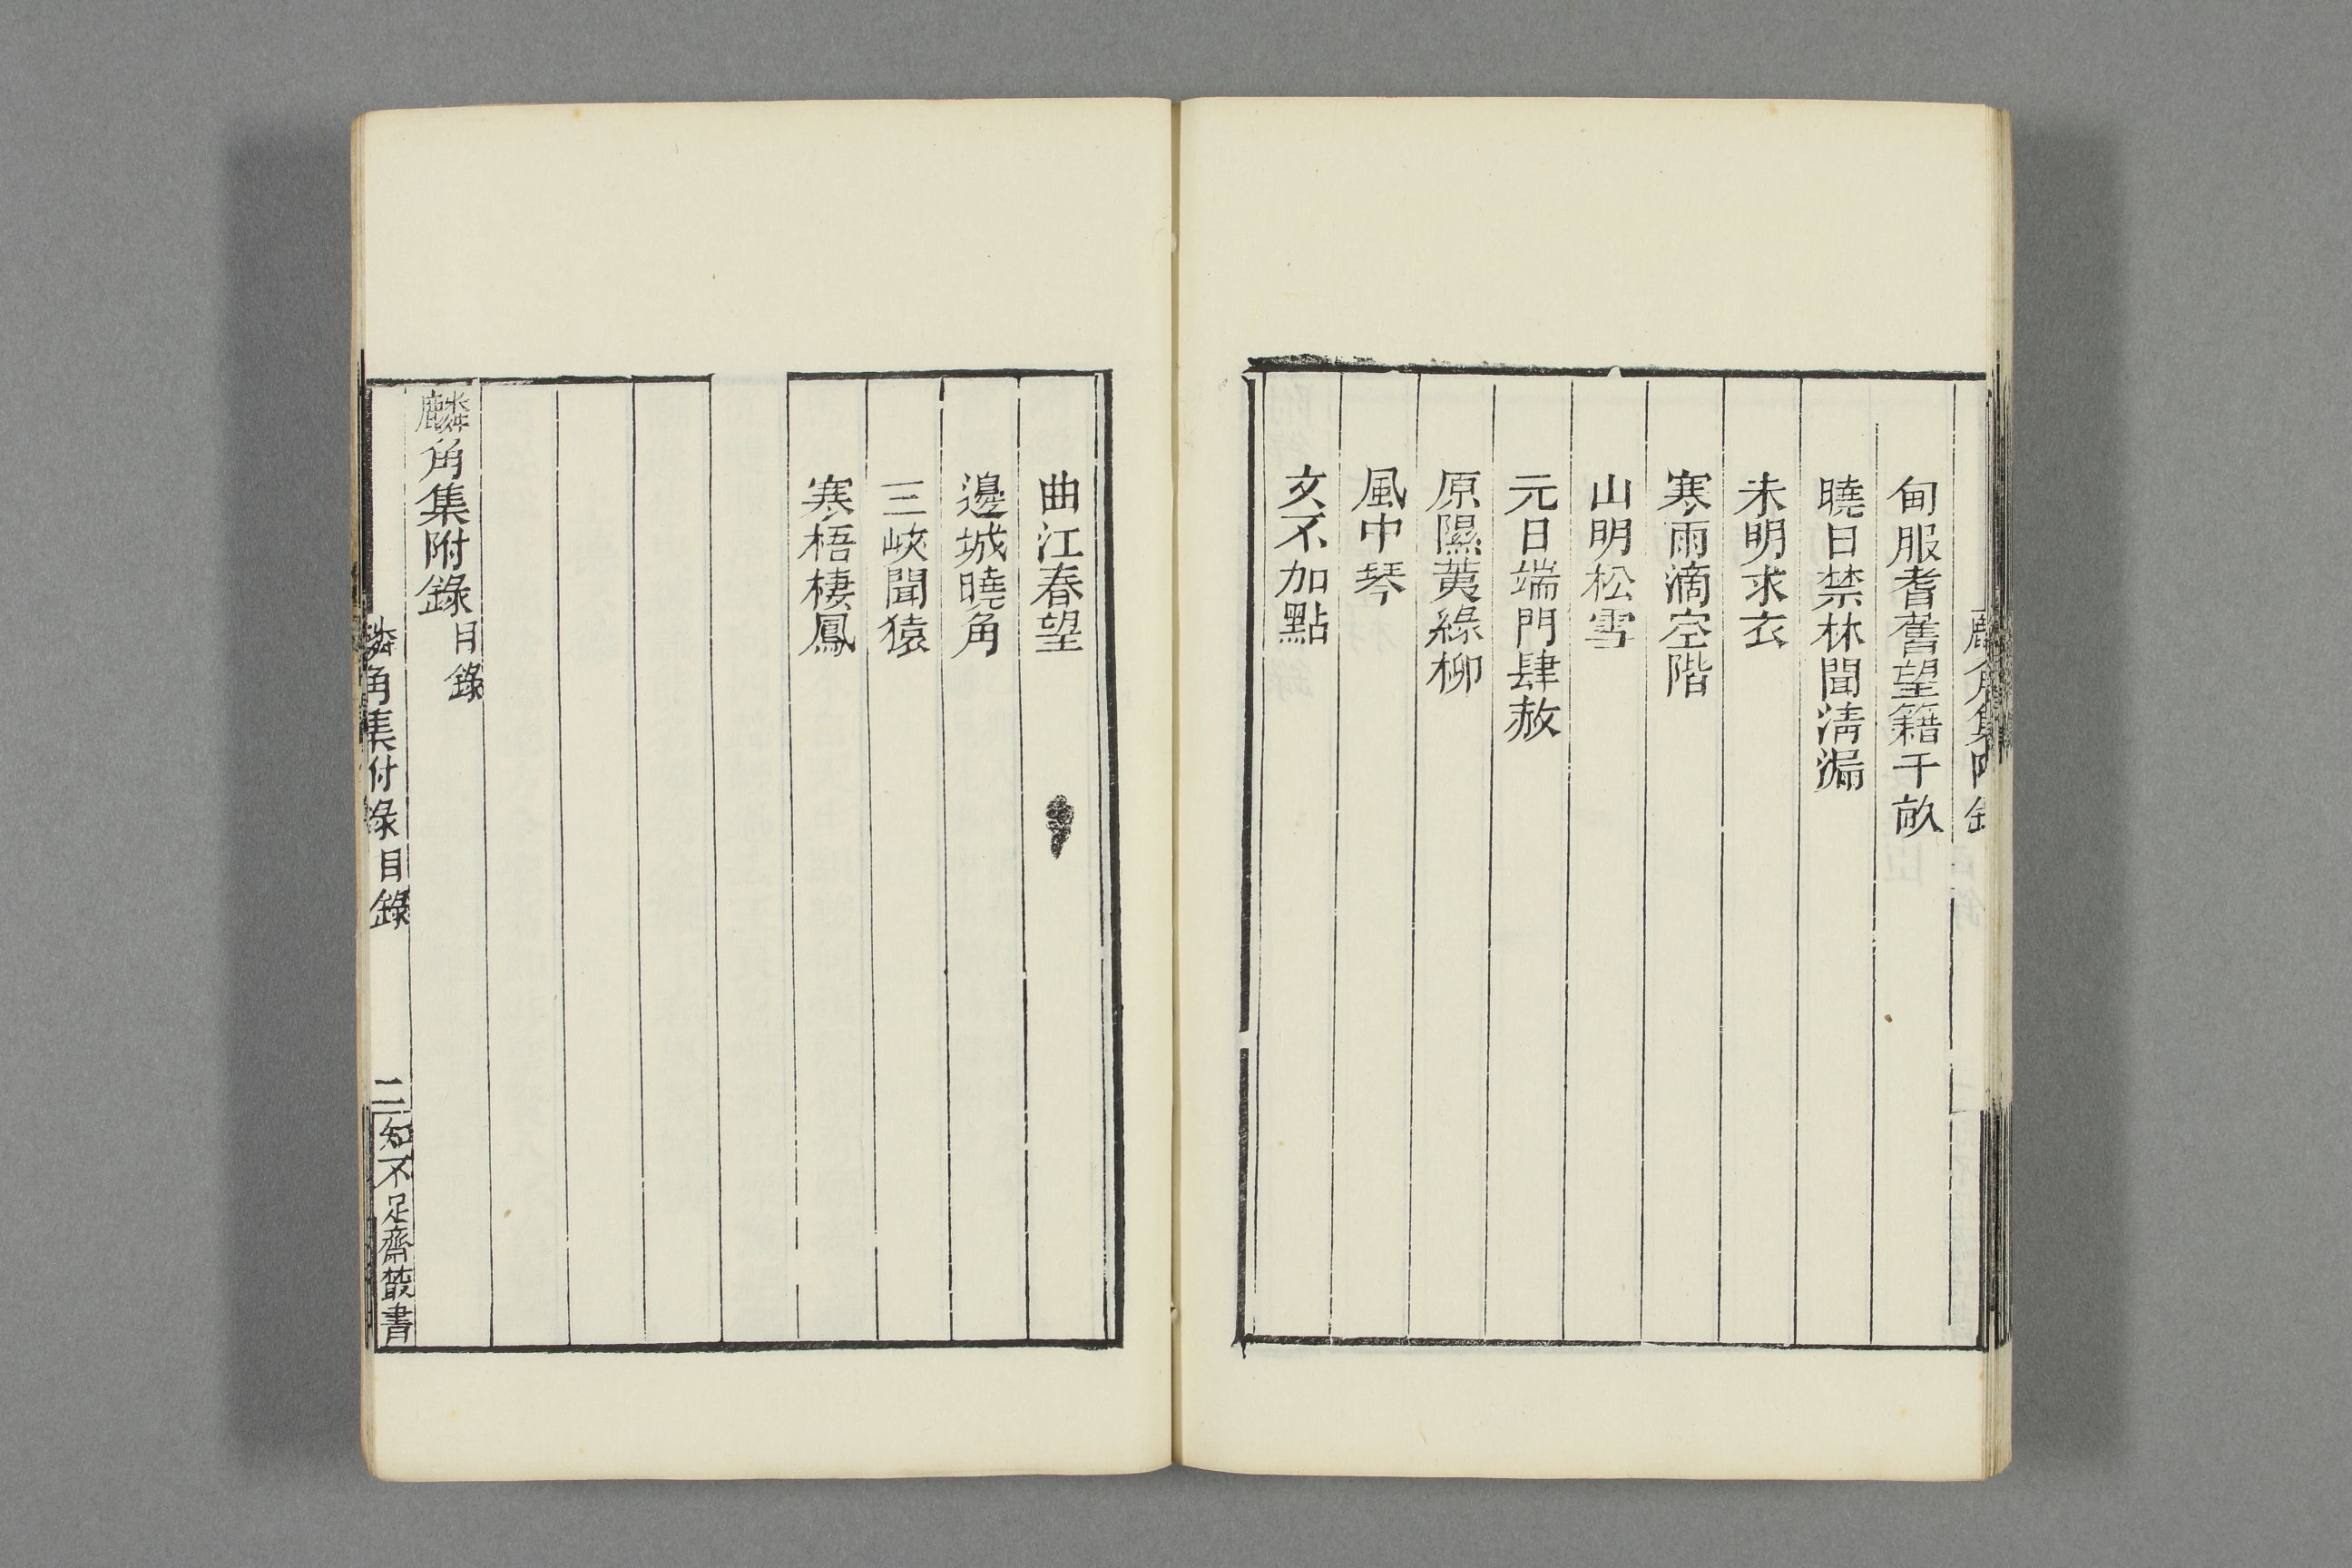 甸服耆舊望籍千畝
曉日禁林聞清漏
未明求衣
寒雨滴空階
山明松雪
元日端門肆赦
原隰荑綠柳
風中琴
文不加點
曲江春望
邊城曉角
三峽聞猿
寒梧棲鳳
麟角集附錄目錄
麟角集附錄目錄
二
知不足齋叢書